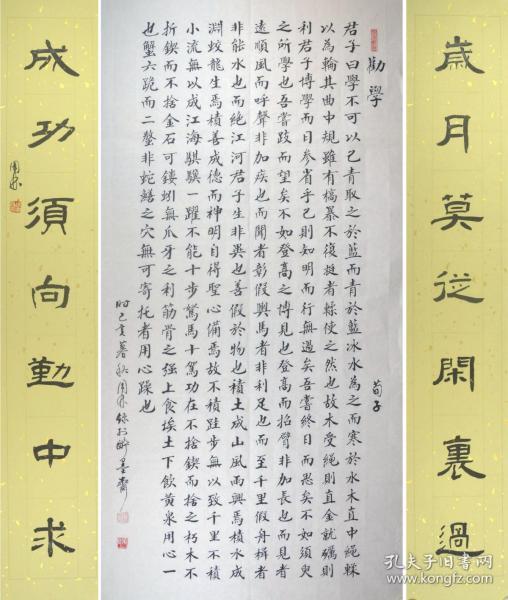 歲月莫從閑裏過
勸學
荀子
君子曰學不可以已青取之於藍而青於藍冰水為之而寒於水木直中繩輮
以為輪其曲中規雖有槁暴不復挺者輮使之然也故木受繩則直金就礪則
利君子博學而日參省乎己則知明而行無過矣吾嘗終日而思矣不如須臾
之所學也吾嘗跂而望矣不如登高之博見也登高而招臂非加長也而見者
遠順風而呼聲非加疾也而聞者彰假輿馬者非利足也而至千里假舟楫者
非能水也而絕江河君子生非異也善假於物也積土成山風雨興焉積水成
淵蛟龍生焉積善成德而神明自得聖心備焉故不積跬步無以致千里不積
小流無以成江海騏驥一躍不能十步駑馬十駕功在不捨鍥而捨之朽木不
折鍥而不捨金石可鏤蚓無爪牙之利筋骨之强上食埃土下飲黃泉用心一
也蟹六跪而二螯非蛇鱔之穴無可寄托者用心躁也
時己亥暮秋周錄於醉墨齋
成功須向勤中求
周
孔夫子旧书网
kongfz.com